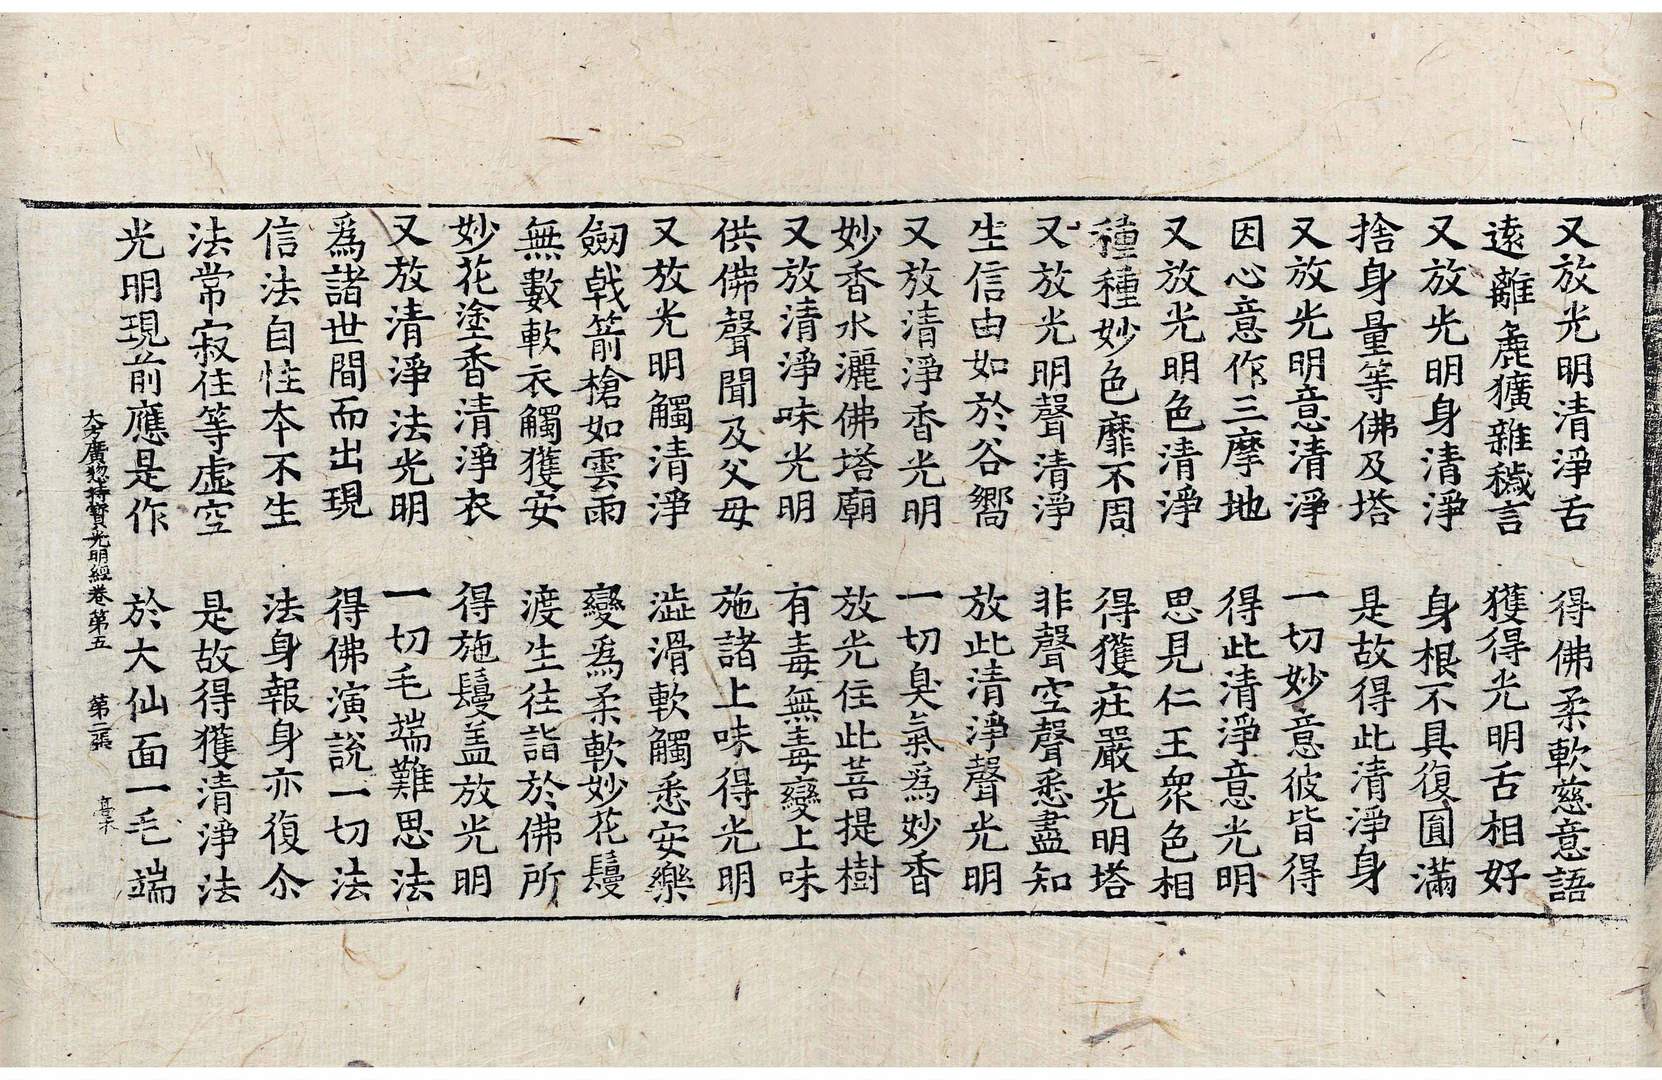 又放光明清淨舌　得佛柔軟慈意語
遠離麁獷雜穢言　獲得光明舌相好
又放光明身清淨　身根不具復圓滿
捨身量等佛及塔　是故得此清淨身
又放光明意清淨　一切妙意彼皆得
因心意作三摩地　得此清淨意光明
又放光明色清淨　思見仁王衆色相
種種妙色靡不周　得獲莊嚴光明塔
又放光明聲清淨　非聲空聲悉盡知
生信由如於谷嚮　放此清淨聲光明
又放清淨香光明　一切臭氣爲妙香
妙香水灑佛塔廟　放光住此菩提樹
又放清淨味光明　有毒無毒變上味
供佛聲聞及父母　施諸上味得光明
又放光明觸清淨　澁滑軟觸悉安樂
劒戟箭槍如雲雨　變爲柔軟妙花鬘
無數軟衣觸獲安　渡生往詣於佛所
妙花塗香清淨衣　得施鬘盖放光明
又放清淨法光明　一切毛端難思法
爲諸世間而出現　得佛演說一切法
信法自性本不生　法身報身亦復尒
法常寂住等虛空　是故得獲清淨法
光明現前應是作　於大仙面一毛端
大方廣揔持寶光明經卷第五　第二張　毫